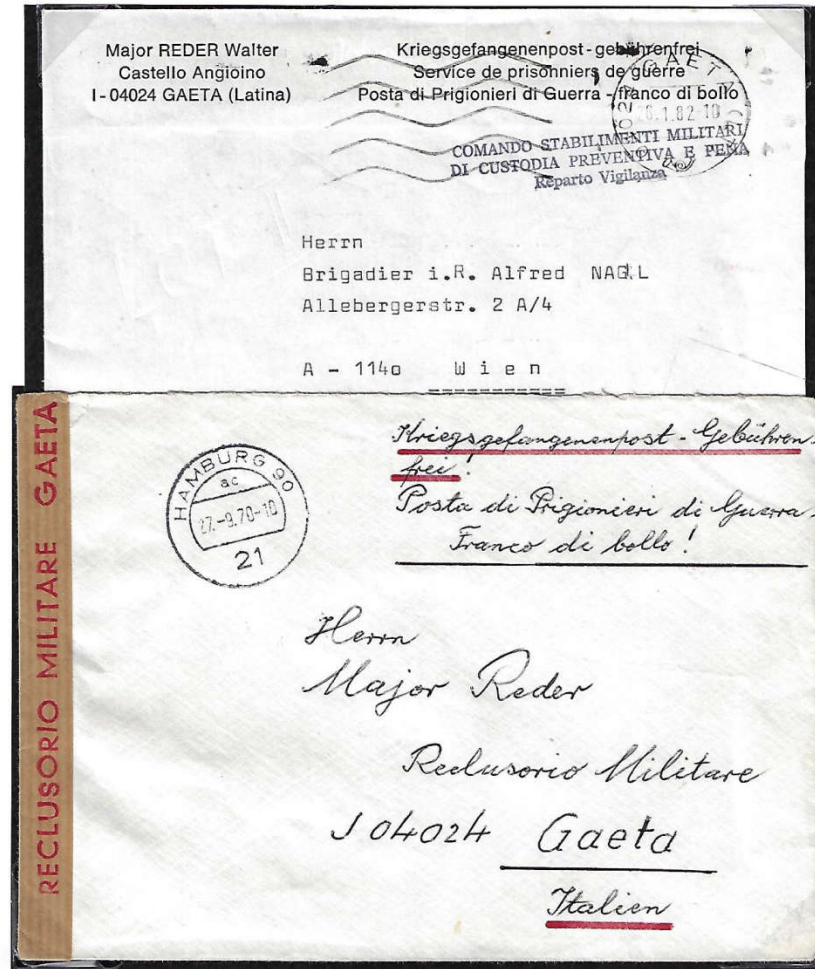 Major REDER Walter
Castello Angioino
I-04024 GAETA (Latina)
Kriegsgefangenenpost-gebührenfrei
Service de prisonniers de guerre
Posta di Prigionieri di Guerra - franco di bollo
GAETA
26.1.82-10
COMANDO STABILIMENTI MILITARI
DI CUSTODIA PREVENTIVA E PENA
Reparto Vigilanza
Herrn
Brigadier i.R. Alfred NAGL
Allebergerstr. 2 A/4
A - 114o Wien
RECLUSORIO MILITARE GAETA
HAMBURG 90
ac
27.-9.70-10
21
Kriegsgefangenenpost - Gebühren-
frei!
Posta di Prigionieri di Guerra -
Franco di bollo!
Herrn
Major Reder
Reclusorio Militare
J 04024 Gaeta
Italien